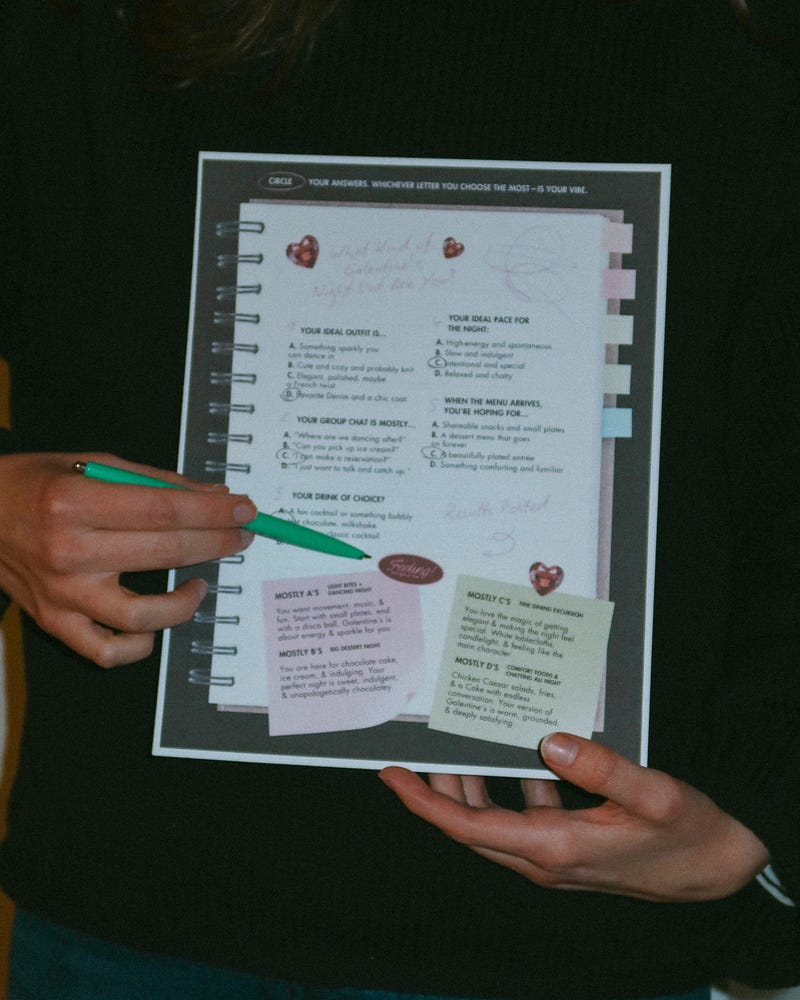 CIRCLE YOUR ANSWERS. WHICHEVER LETTER YOU CHOOSE THE MOST—IS YOUR VIBE.
What Kind of
Galentine's
Night Out Are You?
1
YOUR IDEAL OUTFIT IS...
A. Something sparkly you
can dance in
B. Cute and cozy and probably knit
C. Elegant, polished, maybe
a French twist
D. Favorite Denim and a chic coat
2
YOUR GROUP CHAT IS MOSTLY...
A. "Where are we dancing after?"
B. "Can you pick up ice cream?"
C. "I can make a reservation?"
D. "I just want to talk and catch up."
3
YOUR DRINK OF CHOICE?
A. A fun cocktail or something bubbly
chocolate, milkshake
classic cocktail
D.
4
YOUR IDEAL PACE FOR
THE NIGHT:
A. High-energy and spontaneous
B. Slow and indulgent
C. Intentional and special
D. Relaxed and chatty
5
WHEN THE MENU ARRIVES,
YOU'RE HOPING FOR...
A. Shareable snacks and small plates
B. A dessert menu that goes
on forever
C. A beautifully plated entrée
D. Something comforting and familiar
Results Posted
Feeling!
MOSTLY A'S LIGHT BITES +
DANCING NIGHT
You want movement, music, &
fun. Start with small plates, end
with a disco ball, Galentine's is
about energy & sparkle for you
MOSTLY B'S BIG DESSERT NIGHT
You are here for chocolate cake,
ice cream, & indulging. Your
perfect night is sweet, indulgent,
& unapologetically chocolatey.
MOSTLY C'S FINE DINING EXCURSION
You love the magic of getting
elegant & making the night feel
special. White tablecloths,
candlelight, & feeling like the
main character
MOSTLY D'S COMFORT FOODS &
CHATTING ALL NIGHT
Chicken Caesar salads, fries,
& a Coke with endless
conversation. Your version of
Galentine's is warm, grounded,
& deeply satisfying.